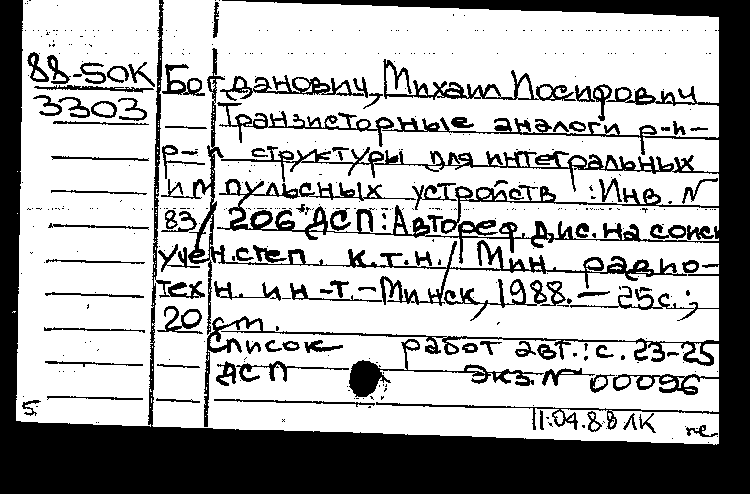 88-5ОК Богданович, Михаил Иосифович
3303 Транзисторные аналоги p-n-
p-n структуры для интегральных
импульсных устройств : Инв. N
83/206 ДСП : Автореф. дис. на соиск
учен. степ. к.т.н. / Мин. радио-
техн. ин-т. - Минск, 1988. - 25с.;
20 см.
Список работ авт.: с. 23-25
ДСП Экз. N 00096
5.
11.04.88 ЛК